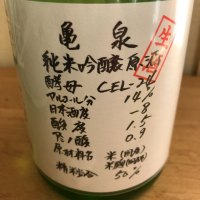 亀泉
生酒
純米吟醸原酒
酵母 CEL-24
アルコール分 14%
日本酒度 -8
酸度 1.5
アミノ酸 0.9
原材料名 米(国産)
米麹(国産米)
精米歩合 50%